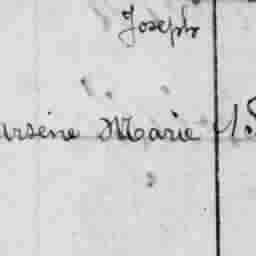 Joseph
arsène Marie